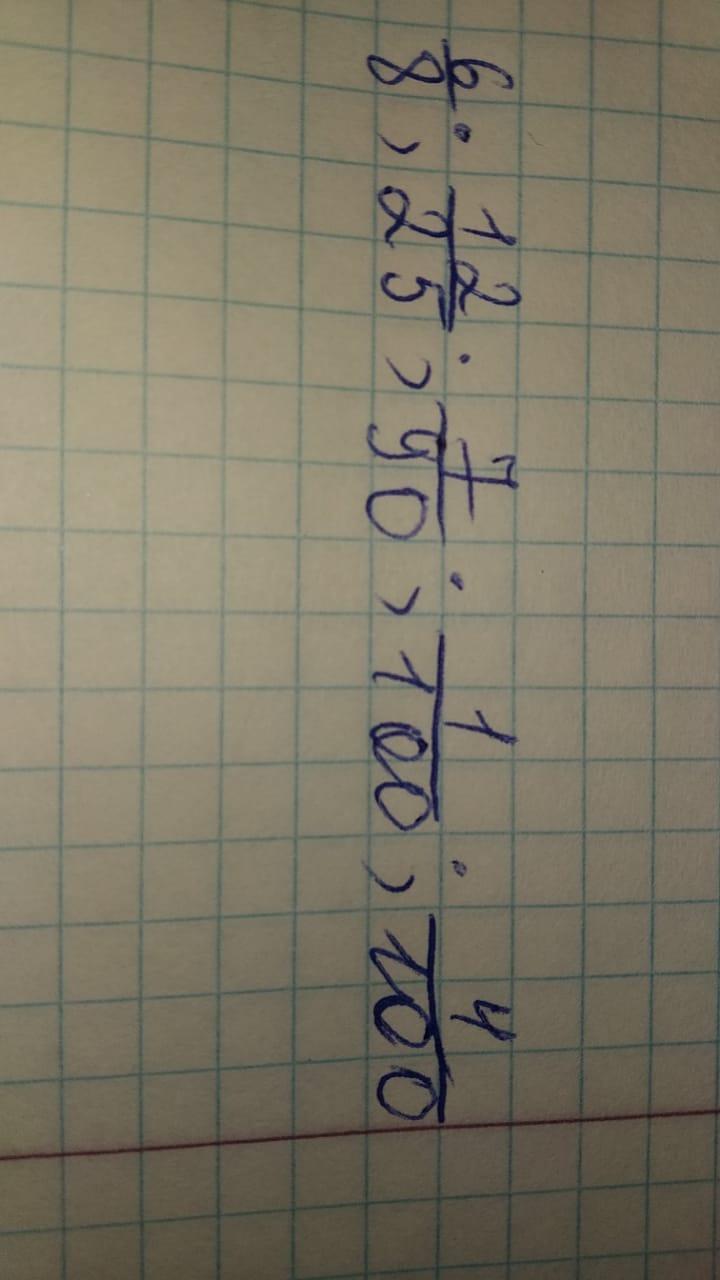 6/8; 12/25; 7/90; 1/100; 4/100